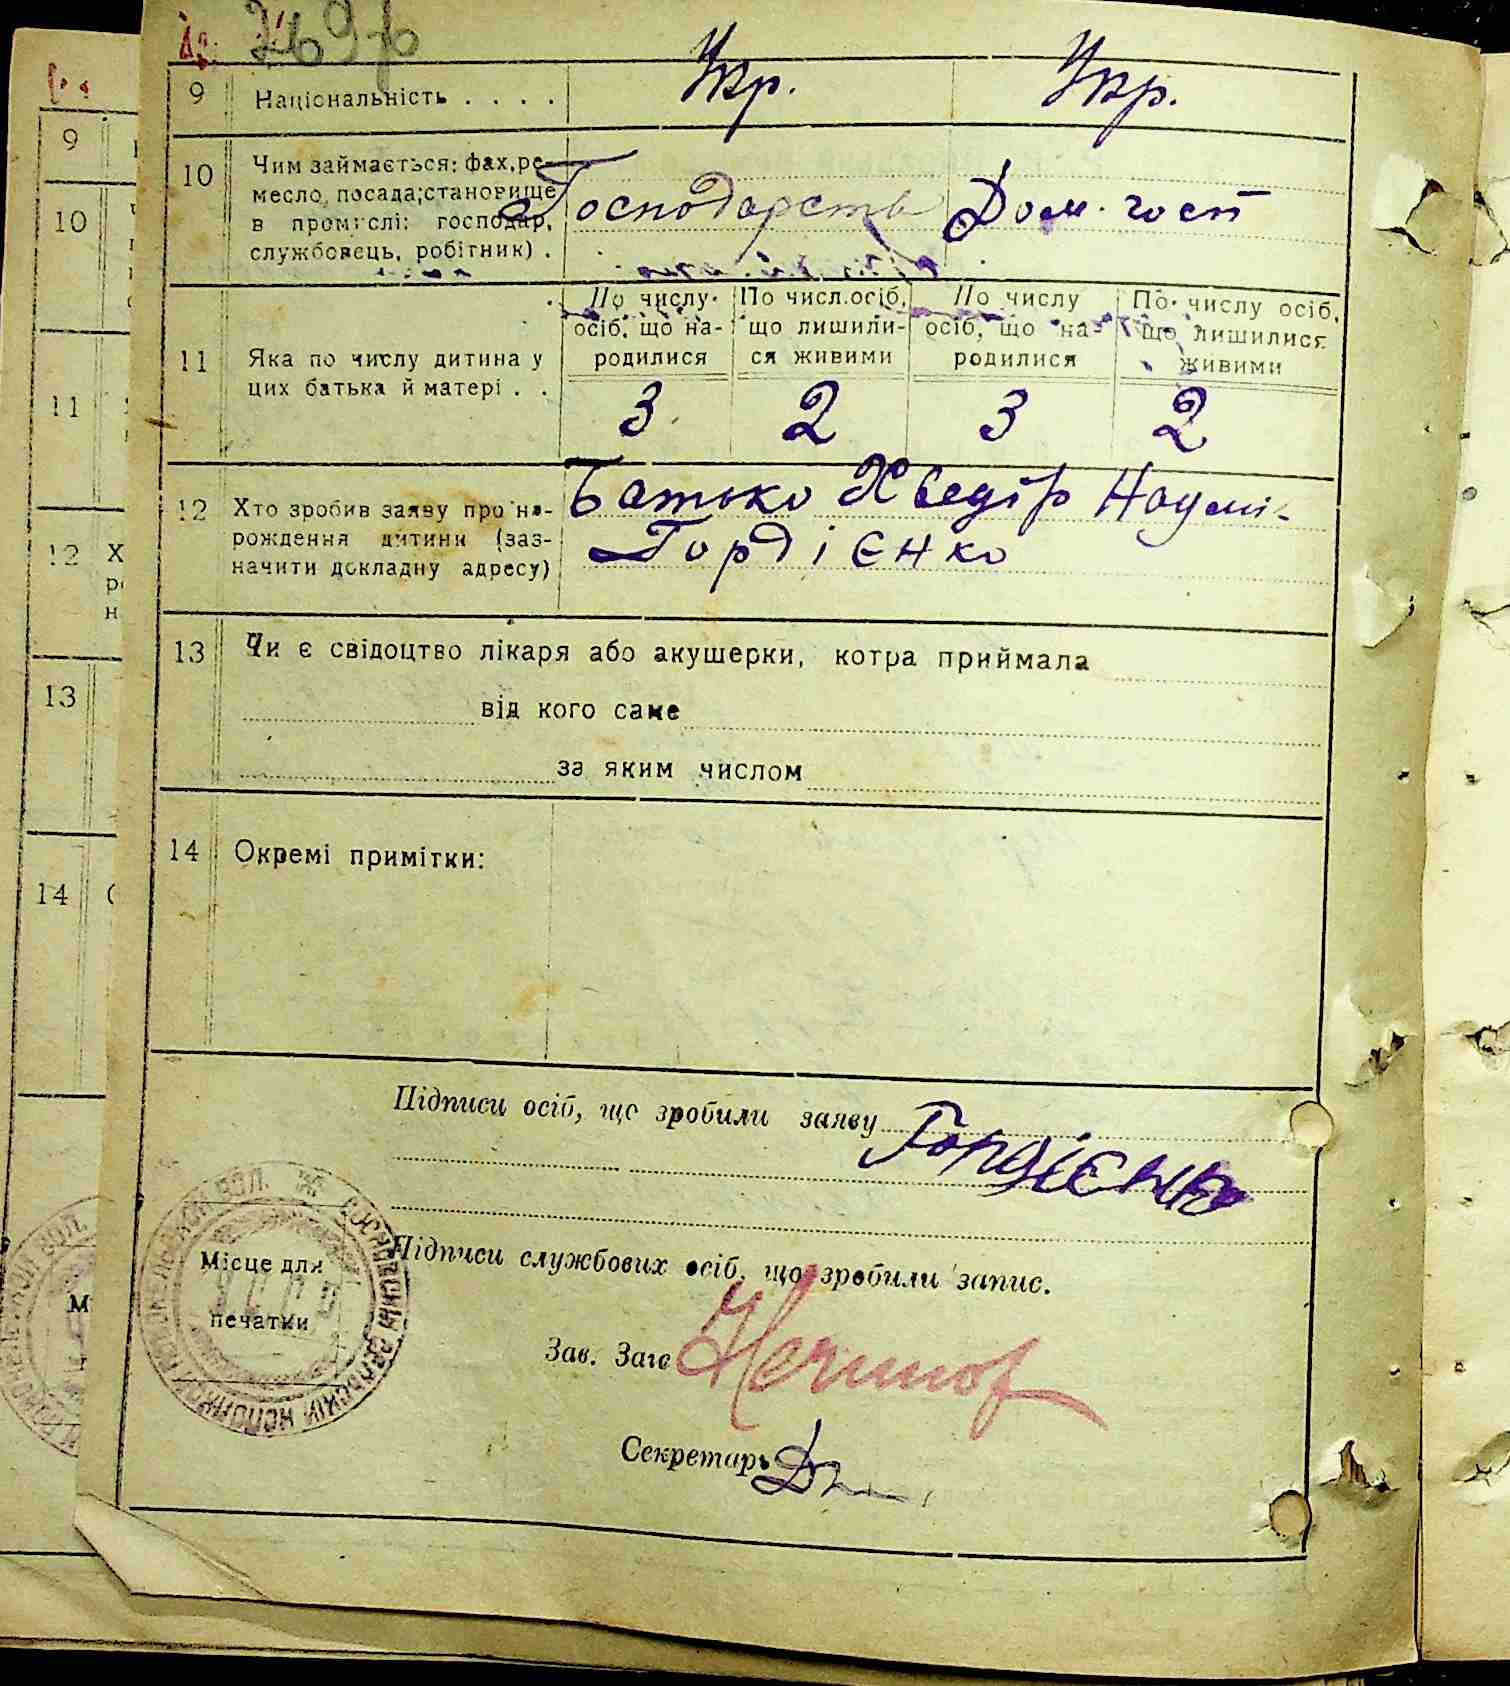 9 Національність . . . . Укр. Укр.
10 Чим займається: фах, ре-
месло, посада; становище
в промислі: господар,
службовець, робітник) .
Господарств Дом. госп
11 Яка по числу дитина у
цих батька й матері . .
По числу
осіб, що на-
родилися
По числ. осіб,
що лишили-
ся живими
По числу
осіб, що на-
родилися
По числу осіб,
що лишилися
живими
3 2 3 2
12 Хто зробив заяву про на-
рождення дитини (заз-
начити докладну адресу)
Батько Хведір Наумі-
Гордієнко
13 Чи є свідоцтво лікаря або акушерки, котра приймала
від кого саме
за яким числом
14 Окремі примітки:
Підписи осіб, що зробили заяву Гордієнко
Підписи службових осіб, що зробили запис.
Місце для
печатки
Зав. Загс
Секретарь
9
10
11
12 Х
13
14